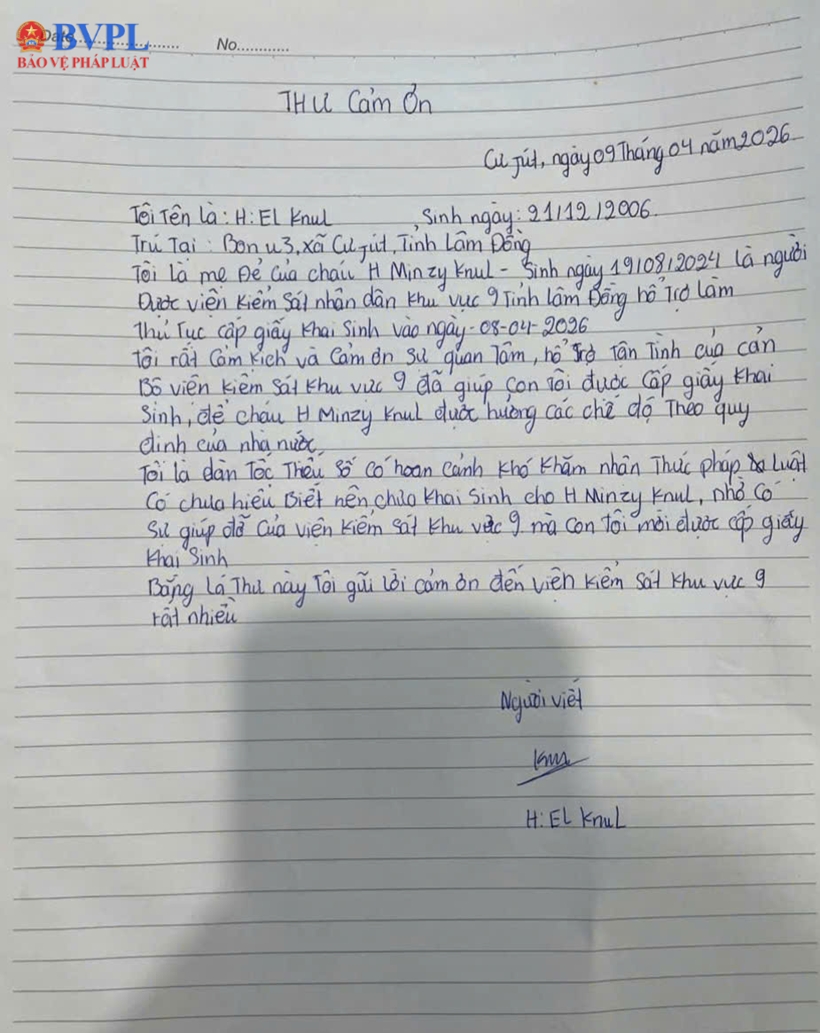 BVPL
BẢO VỆ PHÁP LUẬT
Date.................... No............
THƯ Cảm Ơn
Cư Jút, ngày 09 Tháng 04 năm 2026
Tôi Tên là : H: EL Knul Sinh ngày : 21/12/2006.
Trú Tại : Bon u3, xã Cư Jút, Tỉnh Lâm Đồng
Tôi là mẹ Đẻ của cháu H Minzy Knul - Sinh ngày 19/08/2024 là người
Được viện Kiểm Sát nhân dân Khu vực 9 Tỉnh Lâm Đồng hổ Trợ làm
Thủ Tục cấp giấy Khai Sinh vào ngày - 08-04-2026
Tôi rất Cảm Kích và Cảm ơn Sự quan Tâm, hổ Trợ Tận Tình của cán
Bộ viện Kiểm Sát Khu vực 9 đã giúp Con Tôi được Cấp giấy Khai
Sinh, để cháu H Minzy Knul được hưởng các chế độ Theo quy
định của nhà nước.
Tôi là dân Tộc Thiểu Số Có hoan cảnh Khó Khăn nhận Thức pháp Luật
Có chưa hiểu Biết nên chưa Khai Sinh cho H Minzy Knul, nhờ Có
Sự giúp đỡ Của viện Kiểm Sát Khu vực 9 mà Con Tôi mới được cấp giấy
Khai Sinh
Bằng lá Thư này Tôi gửi Lời cảm ơn đến viện Kiểm Sát Khu vực 9
rất nhiều
Người viết
Knul
H: EL Knul